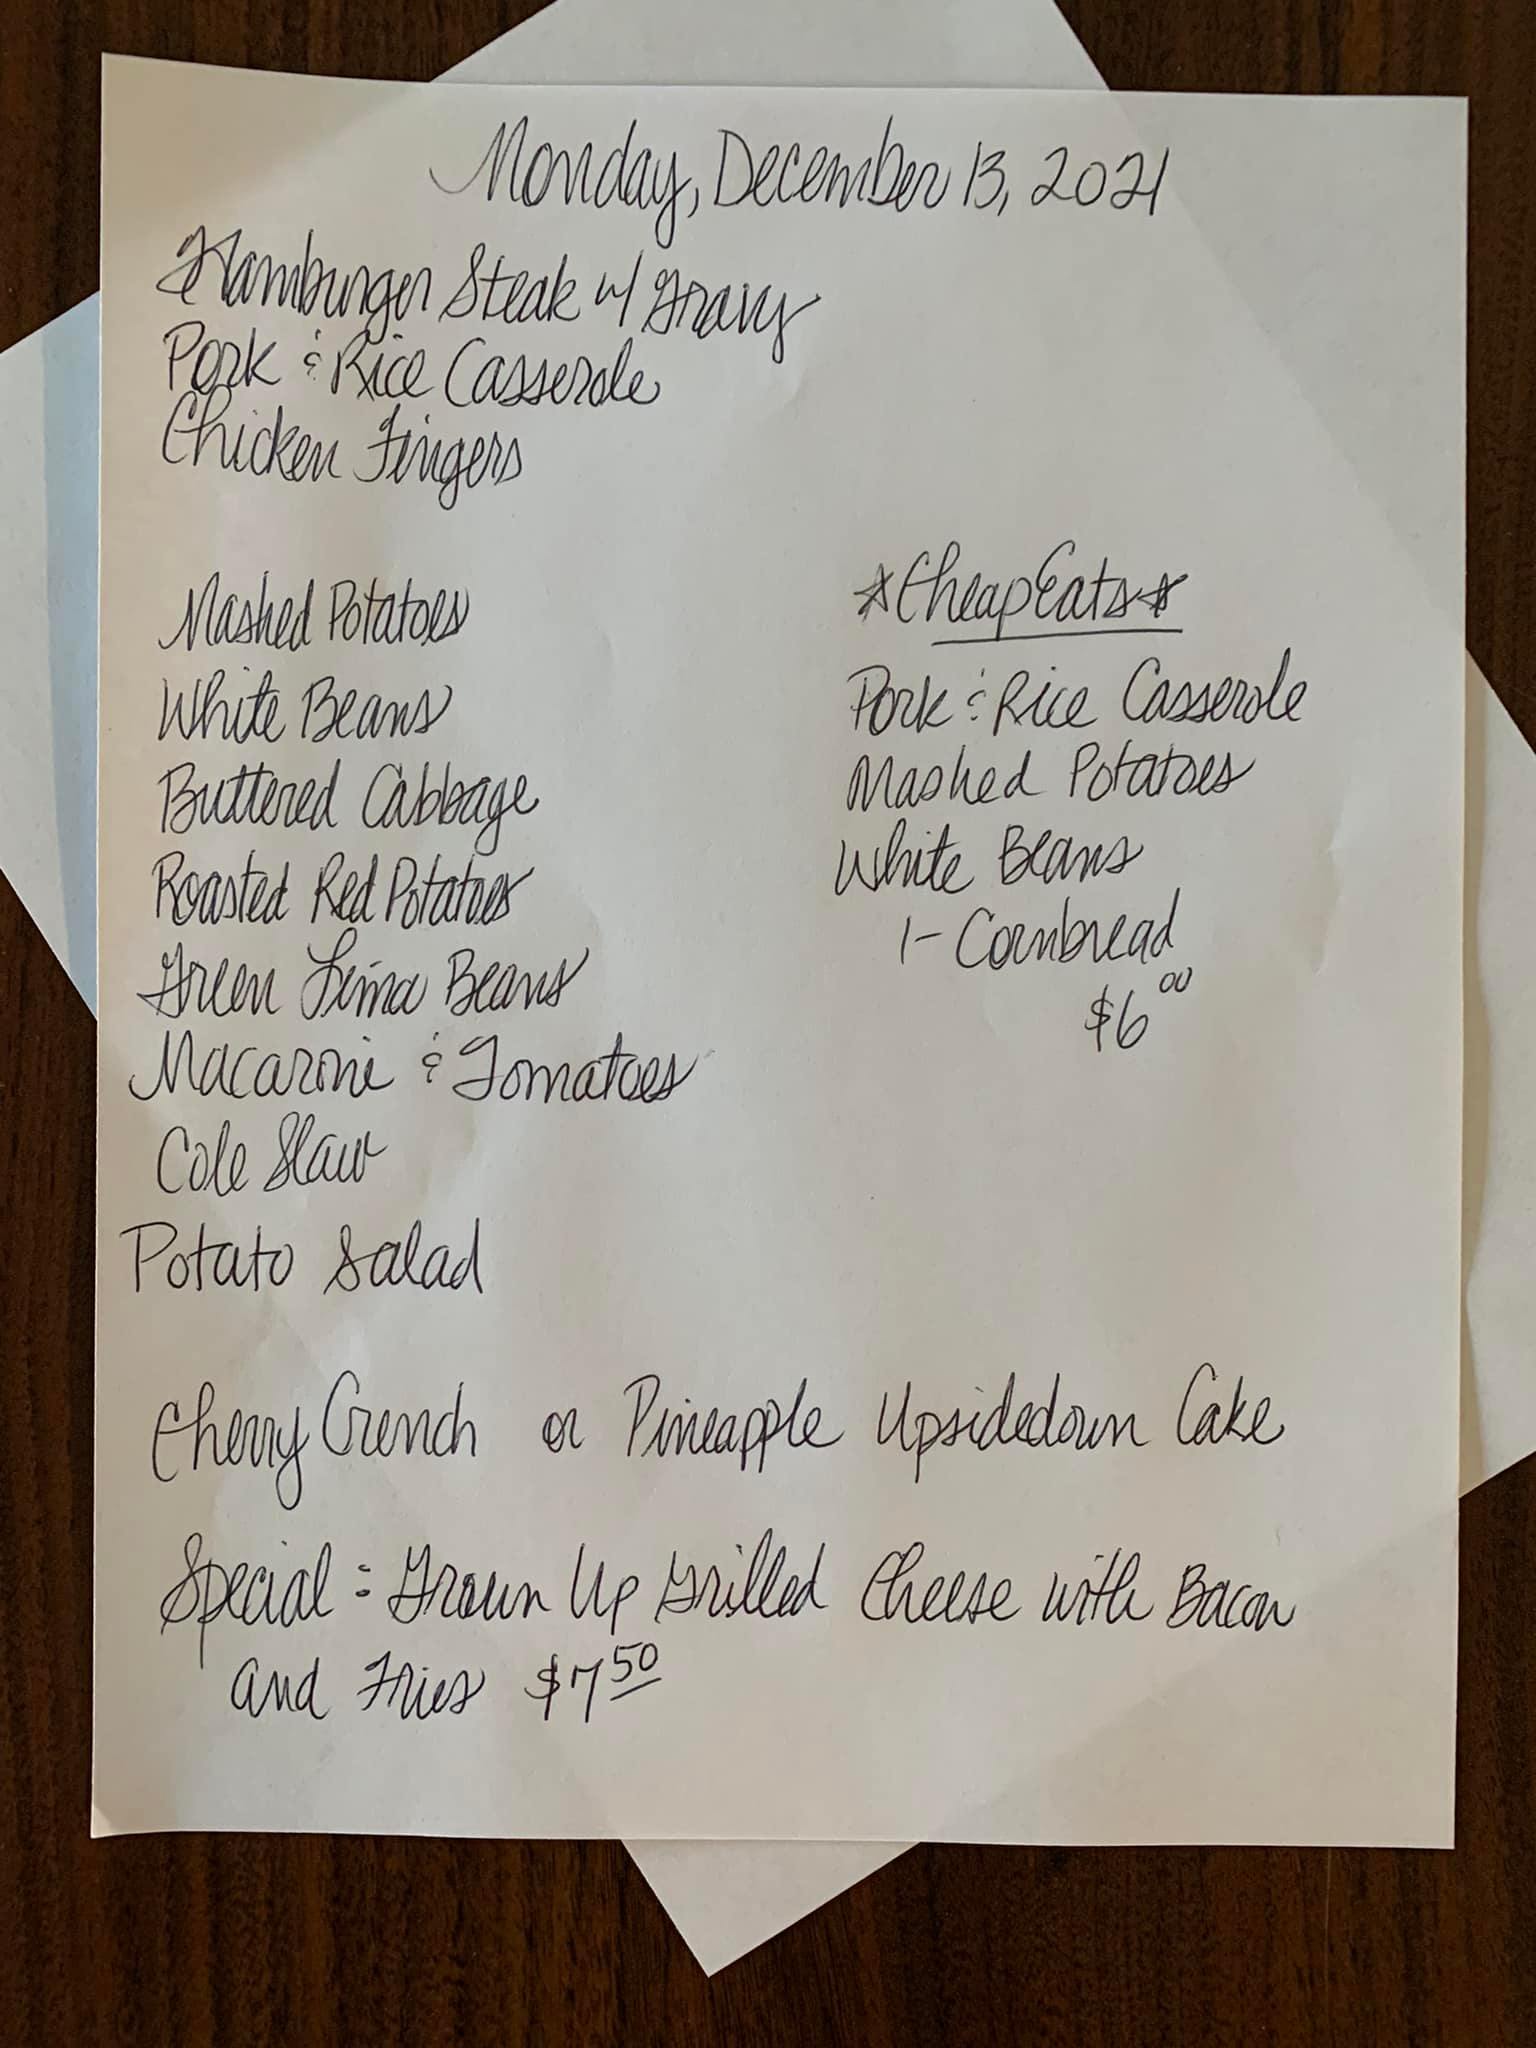 Monday, December 13, 2021
Hamburger Steak w/ Gravy
Pork & Rice Casserole
Chicken Fingers
Mashed Potatoes
White Beans
Buttered Cabbage
Roasted Red Potatoes
Green Lima Beans
Macaroni & Tomatoes
Cole Slaw
Potato Salad
*Cheap Eats*
Pork & Rice Casserole
Mashed Potatoes
White Beans
1- Cornbread
$6.00
Cherry Crunch or Pineapple Upsidedown Cake
Special: Grown Up Grilled Cheese with Bacon
and Fries $7.50